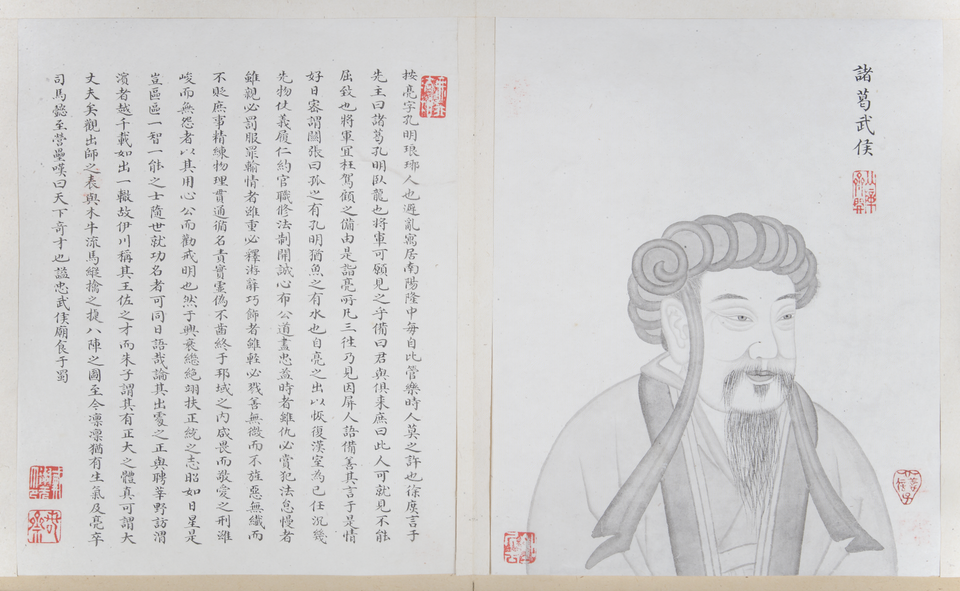 諸葛武侯
按亮字孔明琅琊人也避亂寓居南陽隆中每自比管樂時人莫之許也徐庶言于
先主曰諸葛孔明臥龍也將軍可願見之乎備曰君與俱來庶曰此人可就見不能
屈致也將軍宜枉駕顧之備由是詣亮所凡三往乃見因屏人語備善其言于是情
好日密謂關張曰孤之有孔明猶魚之有水也自亮之出以恢復漢室為己任沉幾
先物仗義履仁約官職修法制開誠心布公道盡忠益時者雖仇必賞犯法怠慢者
雖親必罰服罪輸情者雖重必釋游辭巧飾者雖輕必戮善無微而不旌惡無纖而
不貶庶事精練物理貫通循名責實虛偽不齒終于邦域之內咸畏而敬愛之刑雖
峻而無怨者以其用心公而勸戒明也然于興衰繼絕翊扶正統之志昭如日星是
豈區區一智一能之士隨世就功名者可同日語哉論其出處之正與聘莘野訪渭
濱者越千載如出一轍故伊川稱其王佐之才而朱子謂其有正大之體真可謂大
丈夫矣觀出師之表與木牛流馬縱擒之捷八陣之圖至今凜凜猶有生氣及亮卒
司馬懿至營壘嘆曰天下奇才也謚忠武侯廟食于蜀